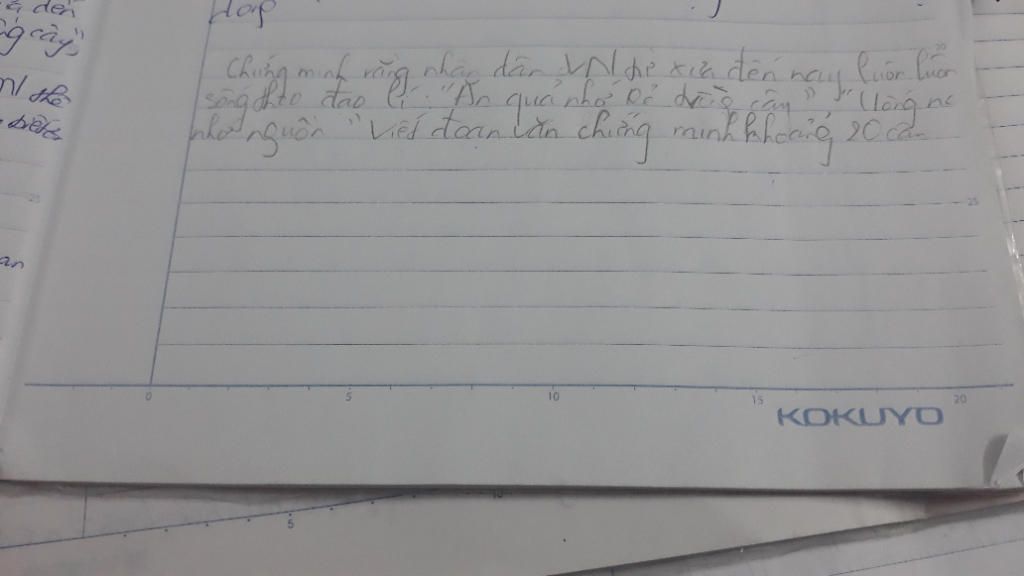 đáp
Chứng minh rằng nhân dân VN từ xưa đến nay luôn luôn
sống theo đạo lí: "Ăn quả nhớ kẻ trồng cây" "Uống nc
nhớ nguồn" Viết đoạn văn chứng minh khoảng 20 câu
đến
cây"
VN thế
an
25
25
0 5 10 15 20
KOKUYO
5
10